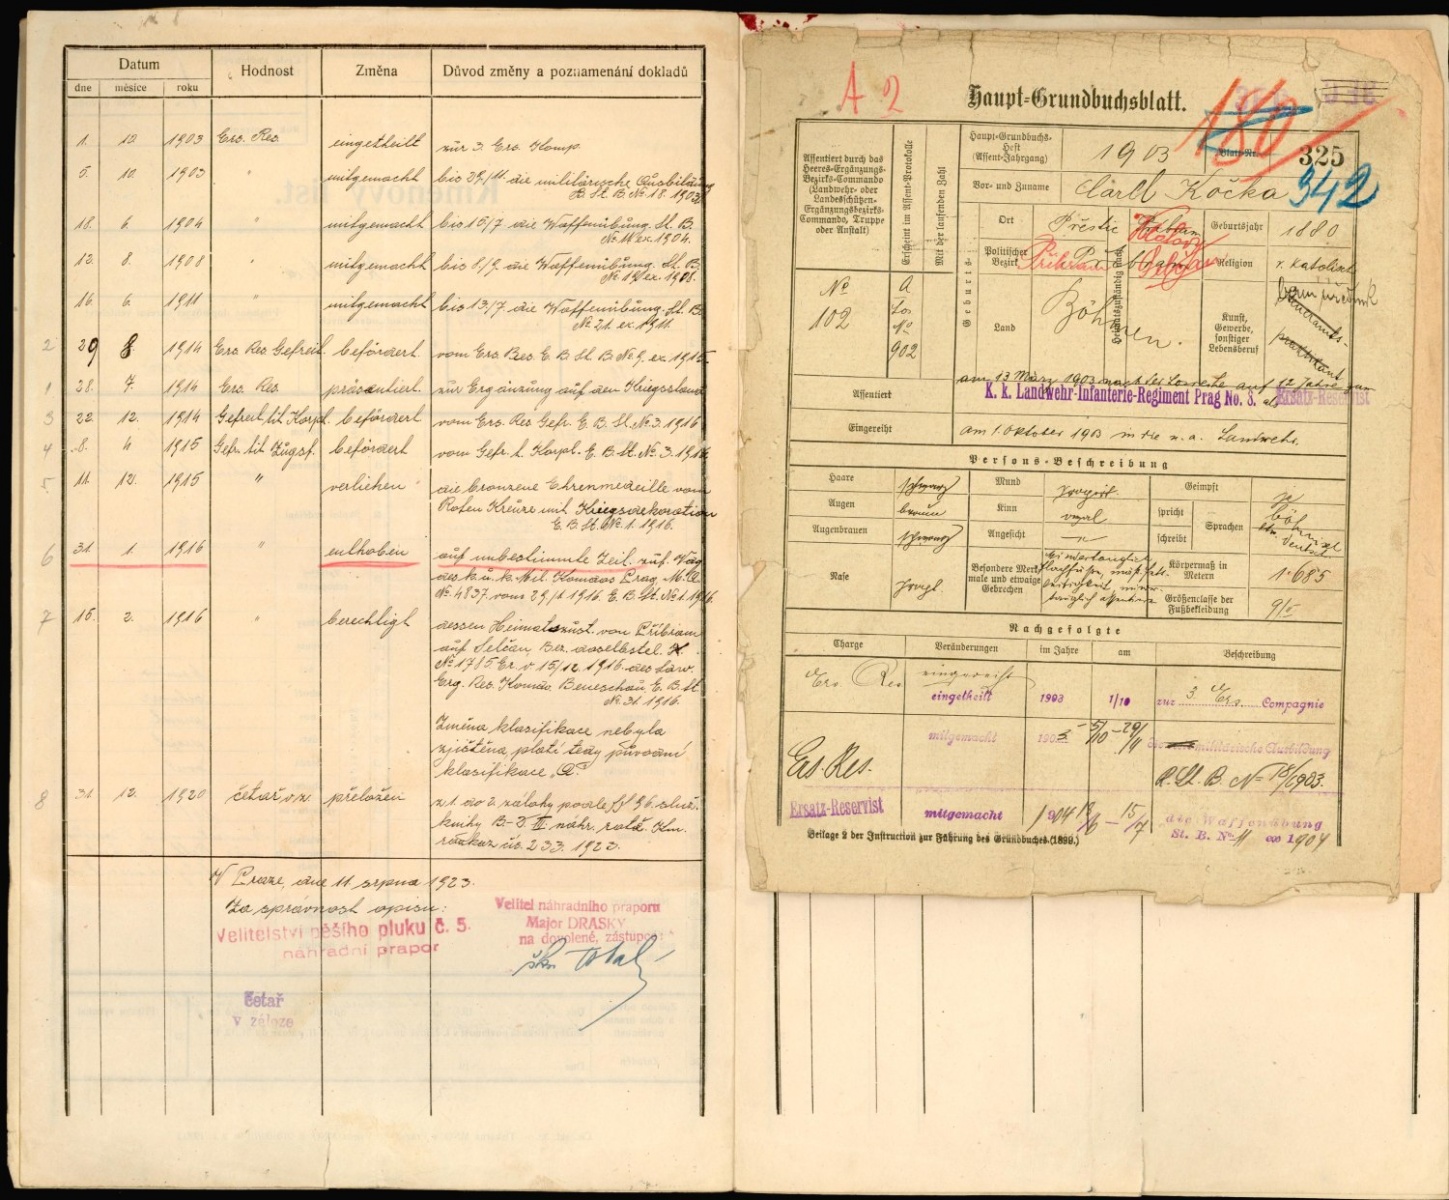 Datum
Hodnost
Změna
Důvod změny a poznamenání dokladů
dne
měsíce
roku
1. 12 1903 Ers. Res. eingetheilt zur 3. Ers. Komp.
5. 10. 1903 " mitgemacht bis 29./11. die militärische Ausbildung
B. St. B. No 18. 1903.
18. 6. 1904 " mitgemacht bis 15/7 die Waffenübung. St. B.
No 11 ex. 1904.
12. 8. 1908 " mitgemacht bis 8./9. die Waffenübung. St. B.
ex 1908.
16. 6. 1911 mitgemacht bis 13/7 die Waffenübung. St. B.
No 21. ex 1911.
2 29 8 1914 Ers. Res. Gefreit. befördert vom Ers. Res. E. B. St. B No 9. ex. 1915.
1 28. 7. 1914 Ers. Res. präsentiert zur Ergänzung auf den Kriegsstand
3 22. 12. 1914 Gefreit. tit. Korpl. befördert vom Ers. Res. Gefr. E. B. St. No. 3. 1916
4 8. 4 1915 Gefr. tit. Zugsf. befördert vom Gefr. t. Korpl. E. B. St. No. 3. 1916
5. 11. 12. 1915 " verliehen die bronzene Ehrenmedeille vom
Roten Kreuze mit Kriegsdekoration
E. B. St. No. 1. 1916.
6 31. 1. 1916 " enthoben auf unbestimmte Zeit. zuf. Vdg
des k. u. k. Mil. Komdos Prag. M. A.
No. 4837. vom 29/1 1916. E. B. St. No 1. 1916.
7 15. 2. 1916 " berechtigt dessen Heimatzust. von Příbram
auf Selčan, Bez. daselbstel.
No 1785 Er. v 15/12. 1916. des Ldw.
Erg. Bez. Komdo. Beneschau. E. B. St.
No. 31. 1916.
Změna klasifikace nebyla
zjištěna, platí tedy původní
klasifikace „A."
8 31. 12. 1920 četař v z. přeložen z 1. do 2. zálohy podle § 36. služ.
knihy B-2. III náhr. rota. Km.
rozkaz čís. 233. 1923.
V Praze, dne 11. srpna 1923.
Za správnost opisu:
Velitelství pěšího pluku č. 5.
náhradní prapor
Velitel náhradního praporu
Major DRASKY
na dovolené, zástupce:
četař
v záloze
A 2
Haupt-Grundbuchsblatt.
Assentiert durch das Heeres-Ergänzungs-Bezirks-Commando (Landwehr- oder Landesschützen-Ergänzungsbezirks-Commando, Truppe oder Anstalt)
Erscheint im Assent-Protokolle
Mit der laufenden Zahl
Haupt-Grundbuchs-Heft
(Assent-Jahrgang)
1903
Blatt-Nr.
325
342
Vor- und Zuname
Carl Kočka
Geburts-
Ort
Přestic
Geburtsjahr
1880
Politischer Bezirk
Příbram
Religion
r. katolisch
Heimatszuständig nach
Land
Böhmen.
Kunst, Gewerbe, sonstiger Lebensberuf
No 102
A
Los No 902
Assentiert
am 13 März 1903 nach der Losreihe auf 12 Jahre zum
K. k. Landwehr-Infanterie-Regiment Prag No. 8.
als
Ersatz-Reservist
Eingereiht
am 1. Oktober 1903 in die n. a. Landwehr.
Persons-Beschreibung
Haare
schwarz
Mund
proport.
Geimpft
ja
Augen
braun
Kinn
oval
spricht
schreibt
Sprachen
böhmisch
etw. deutsch
Augenbrauen
schwarz
Angesicht
Nase
propt.
Besondere Merkmale und etwaige Gebrechen
Körpermaß in Metern
1·685
Größenclasse der Fußbekleidung
9/
Nachgefolgte
Charge
Veränderungen
im Jahre
am
Beschreibung
Ers. Res
eingereiht
eingetheilt 1903 1/10 zur 3. Ers. Compagnie
Ers. Res.
mitgemacht 1903 5/10 - 29/11 militärische Ausbildung
R. St. B. No 18/1903.
Ersatz-Reservist mitgemacht 1904 18/6 - 15/7 die Waffenübung
St. B. No. 11 ex 1904
Beilage 2 der Instruction zur Führung des Grundbuches (1899.)